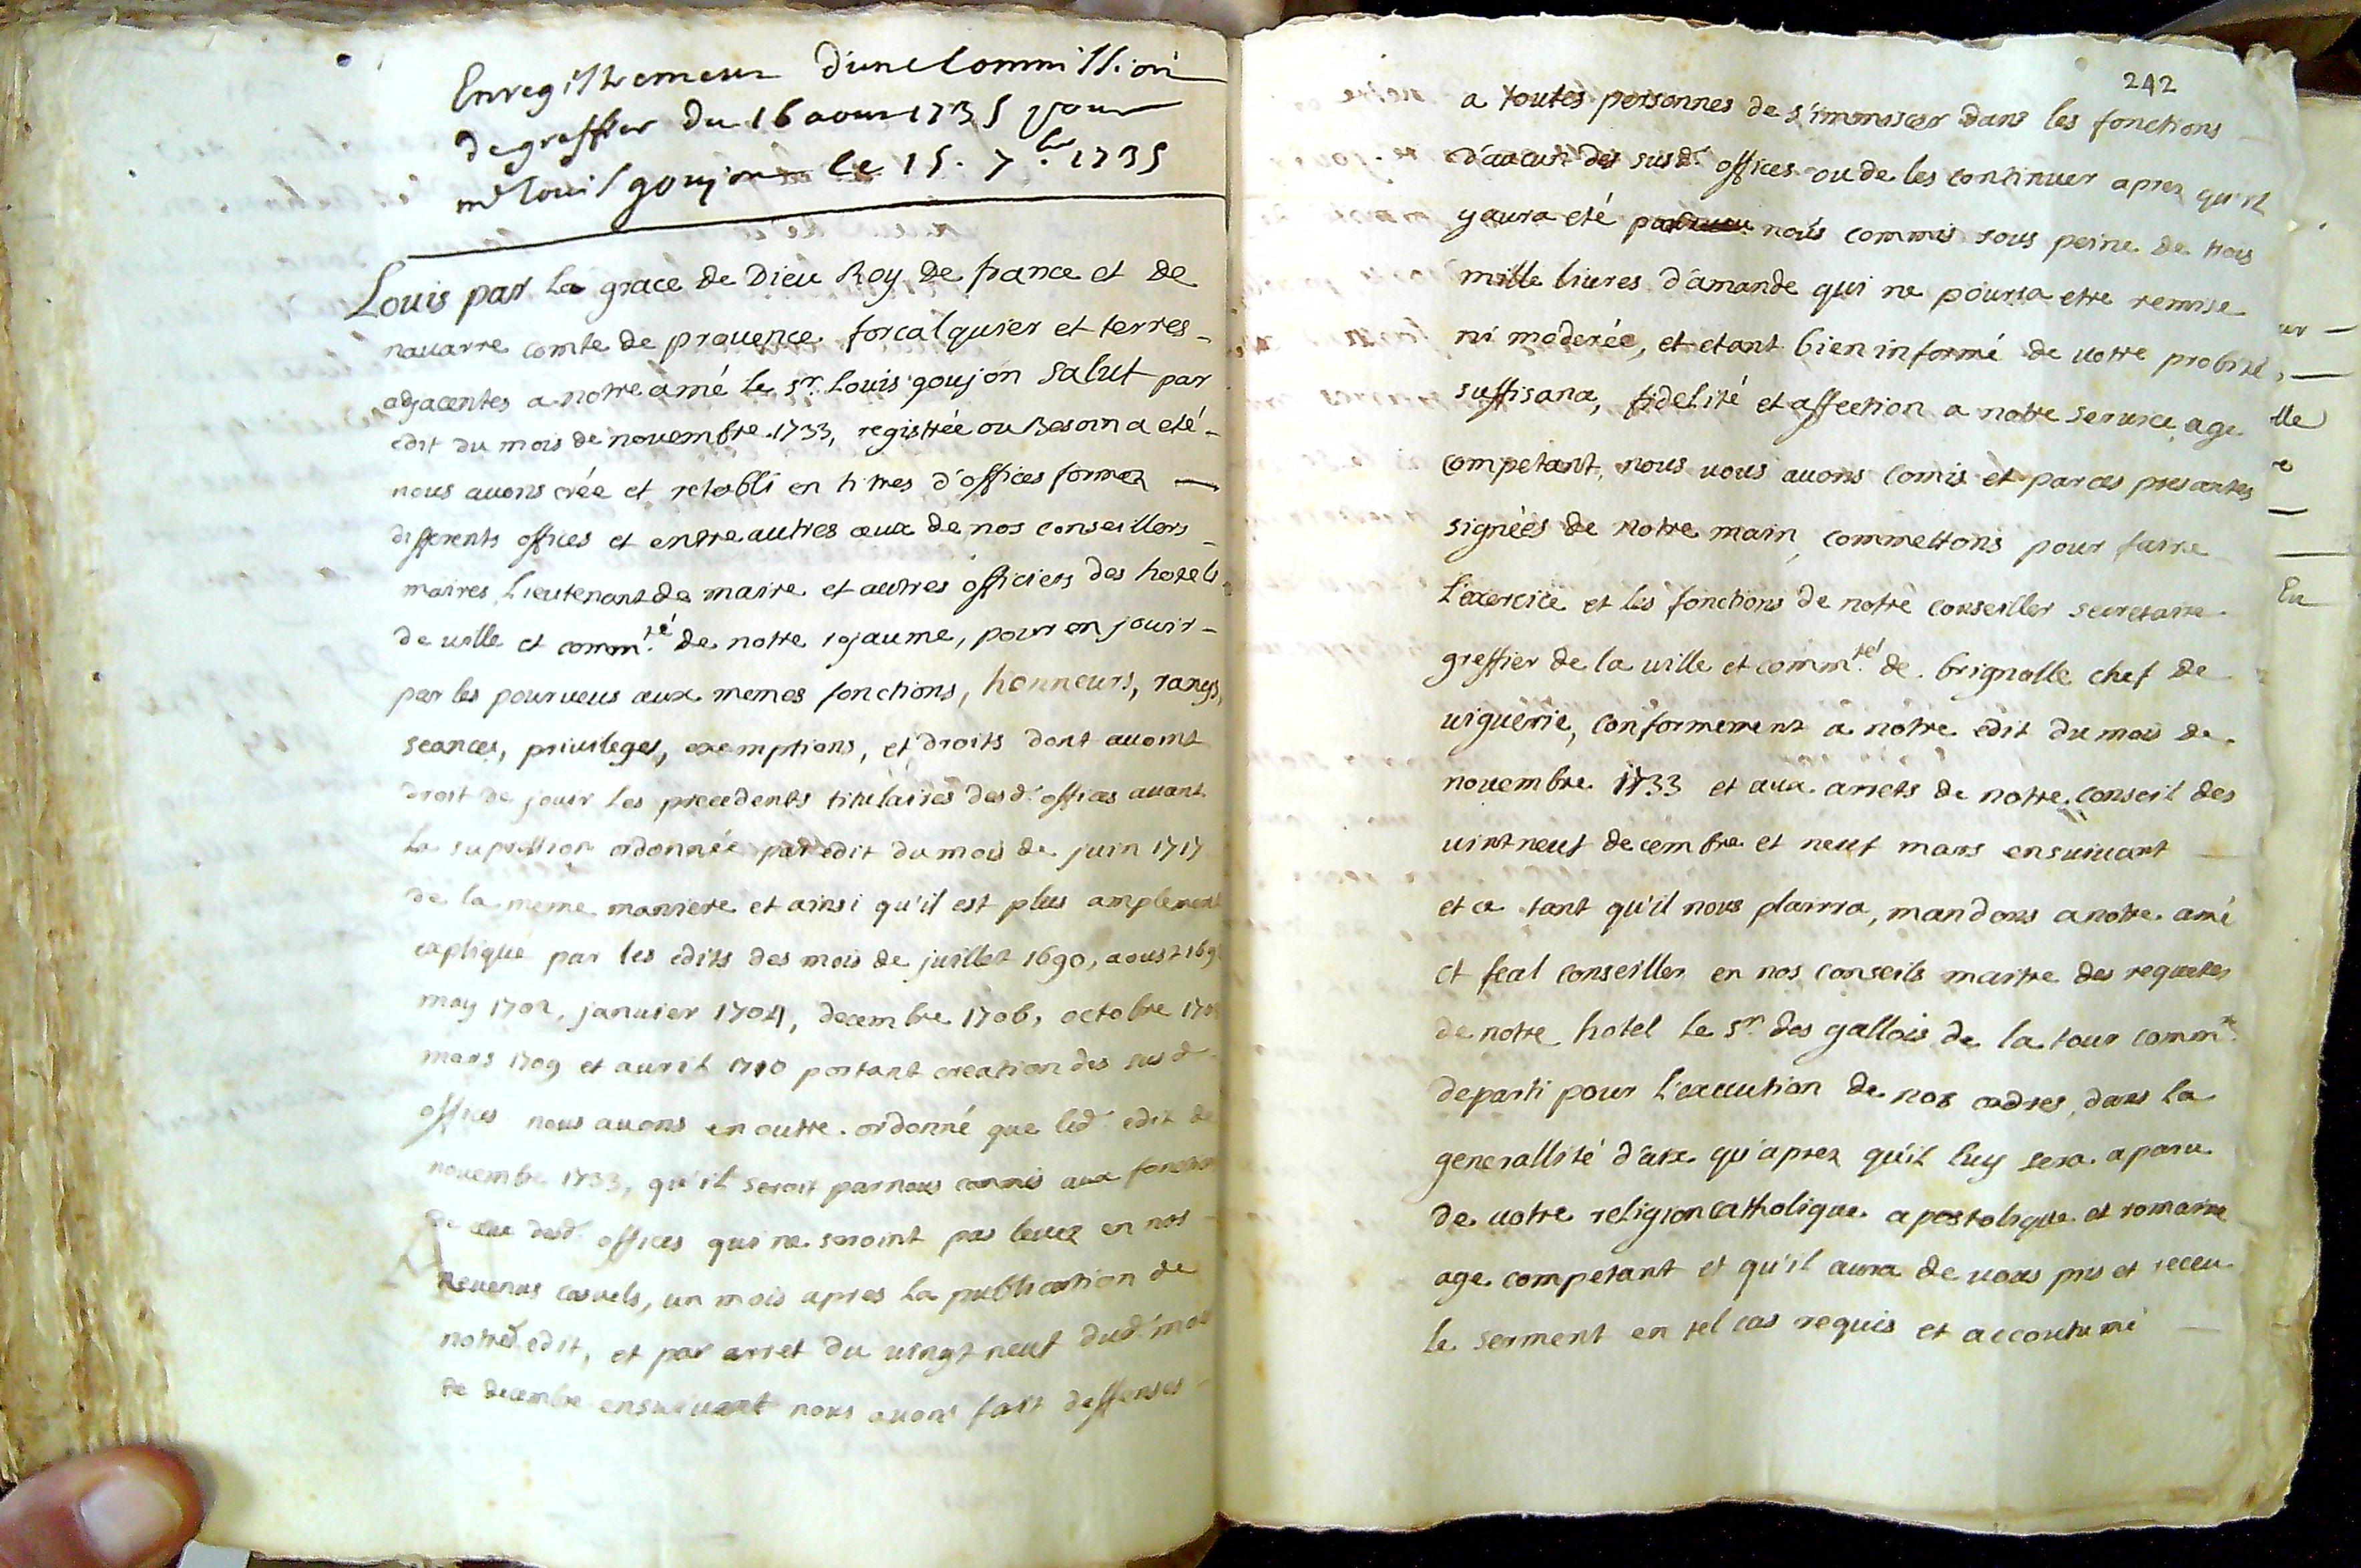 Enregistrement d'une Commission
de greffier du 16 aoust 1735 pour
me Louis goujon le 15. 7bre 1735
Louis par la grace de Dieu Roy de france et de
nauarre comte de prouence forcalquier et terres
adjacentes a notre amé le sr. Louis goujon Salut par
edit du mois de nouembre 1733, registrée ou Besoin a eté
nous auons crée et retabli en titres d'offices formez
differents offices et entre autres ceux de nos conseillers
maires, Lieutenant de maire et autres officiers des hotels
de uille et commté de notre royaume, pour en jouir
par les pourueus aux memes fonctions, honneurs, rangs,
seances, priuileges, exemptions, et droits dont auoint
droit de jouir les precedents titulaires desd. offices auant
la supression ordonnée par edit du mois de juin 1717
de la meme maniere et ainsi qu'il est plus amplement
expliqué par les edits des mois de juillet 1690, aoust 169
may 1702, januier 1704, decembre 1706, octobre 170
mars 1709 et auril 1710 portant creation des susd.
offices nous auons en outre ordonné que led. edit de
nouembre 1733, qu'il seroit par nous commis aux fonctions
de ceux desd. offices qui ne seroint pas leuez en nos
Reuenus casuels, un mois apres la publication de
notred. edit, et par arret du uingt neuf dud. mois
de decembre ensuiuant nous auons fait deffenses
242
a toutes personnes de s'immiscer dans les fonctions
d'aucun des susd. offices ou de les continuer aprez qu'il
y aura eté par nous commis sous peine de trois
mille liures d'amande qui ne pourra etre remise
ni moderée, et etant bien informé de uotre probité,
suffisance, fidelité et affection a notre seruice, age
competant, nous uous auons comis et par ces presantes
signées de notre main, commettons pour faire
l'exercice et les fonctions de notre conseiller secretaire
greffier de la uille et commté de brignolle chef de
uiguerie, conformement a notre edit du mois de
nouembre 1733 et aux arrets de notre conseil des
uintneuf decembre et neuf mars ensuiuant
et ce tant qu'il nous plairra, mandons a notre amé
et feal conseiller en nos conseils maitre des requetes
de notre hotel le sr. des gallois de la tour commre
departi pour l'execution de nos ordres, dans la
generallité d'aix qu'aprez qu'il luy sera aparu
de uotre religion catholique apostolique et romaine
age competant et qu'il aura de uous pris et receu
le serment en tel cas requis et accoutumé